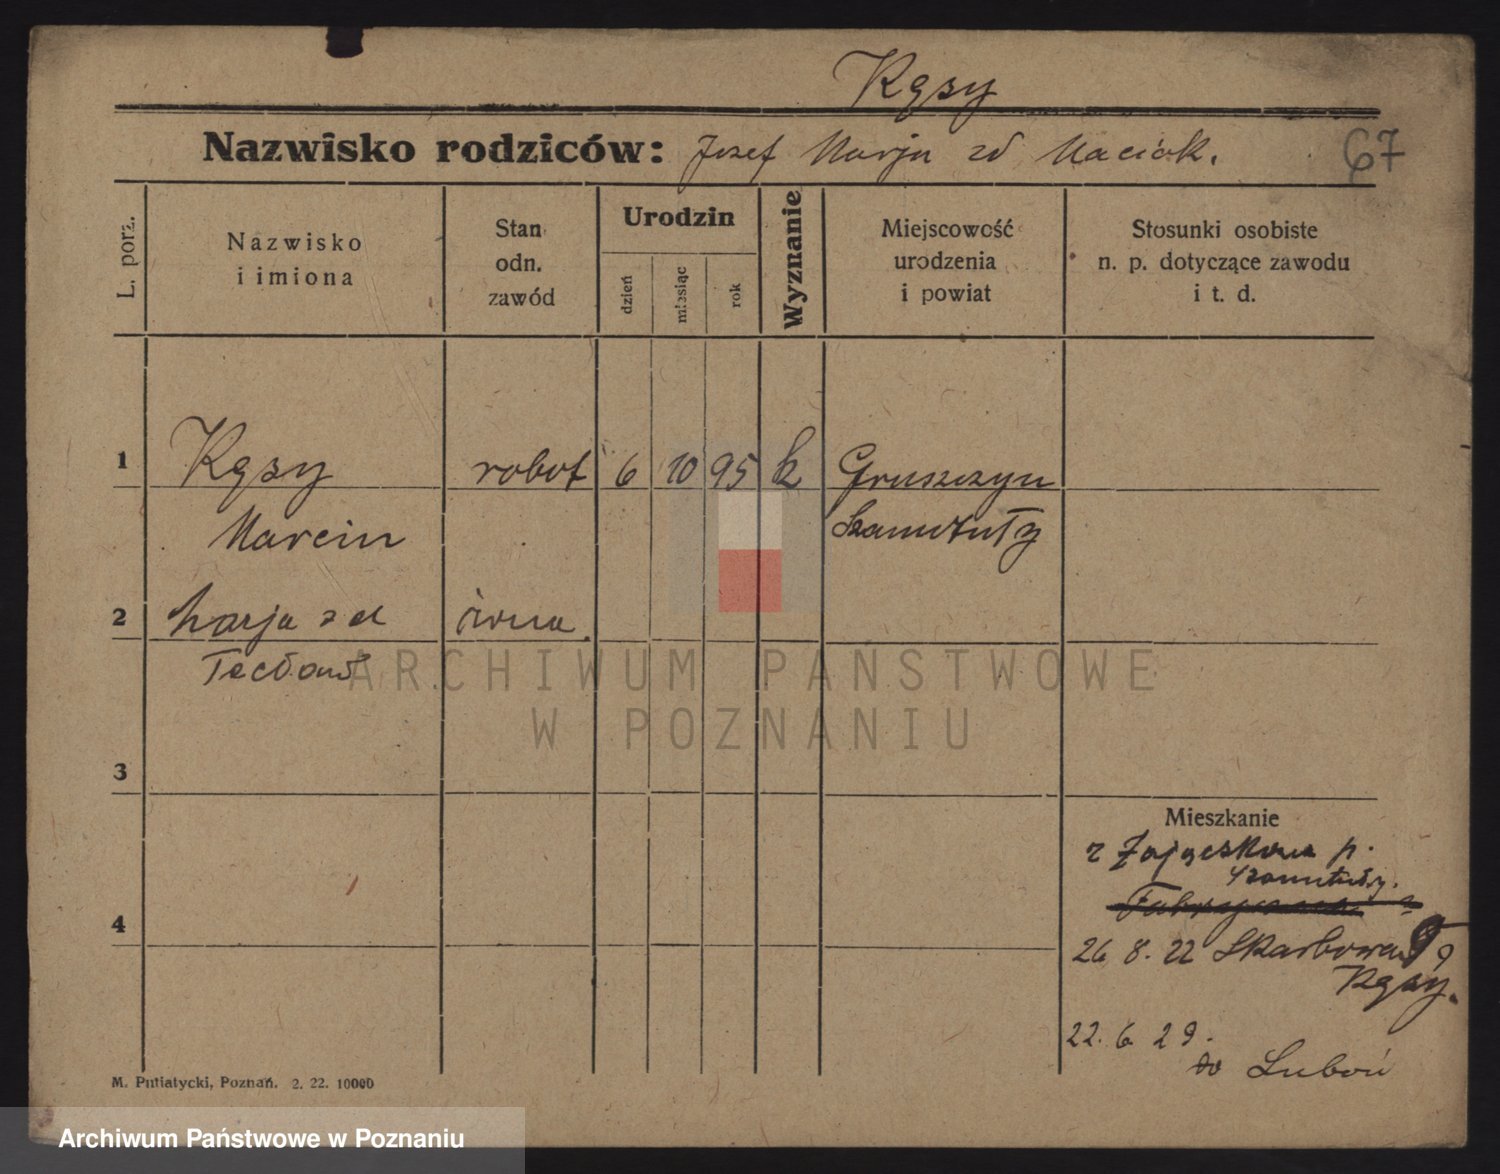 Kąsy
Nazwisko rodziców: Jozef Marja zd Maciak. 67
L. porz.
Nazwisko
i imiona
Stan
odn.
zawód
Urodzin
dzień
miesiąc
rok
Wyznanie
Miejscowość
urodzenia
i powiat
Stosunki osobiste
n. p. dotyczące zawodu
i t. d.
1 Kąsy robot 6 10 95 k Gruszczyn
Marcin Szamotuły
2 Marja zd
3
Mieszkanie
z Zajączkowa p.
Szamotuły.
4
26 8. 22 Skarbowa 9
Kąsy.
22. 6 29.
do Luboń
M. Putiatycki, Poznań. 2. 22. 10000
ARCHIWUM PAŃSTWOWE
W POZNANIU
Archiwum Państwowe w Poznaniu